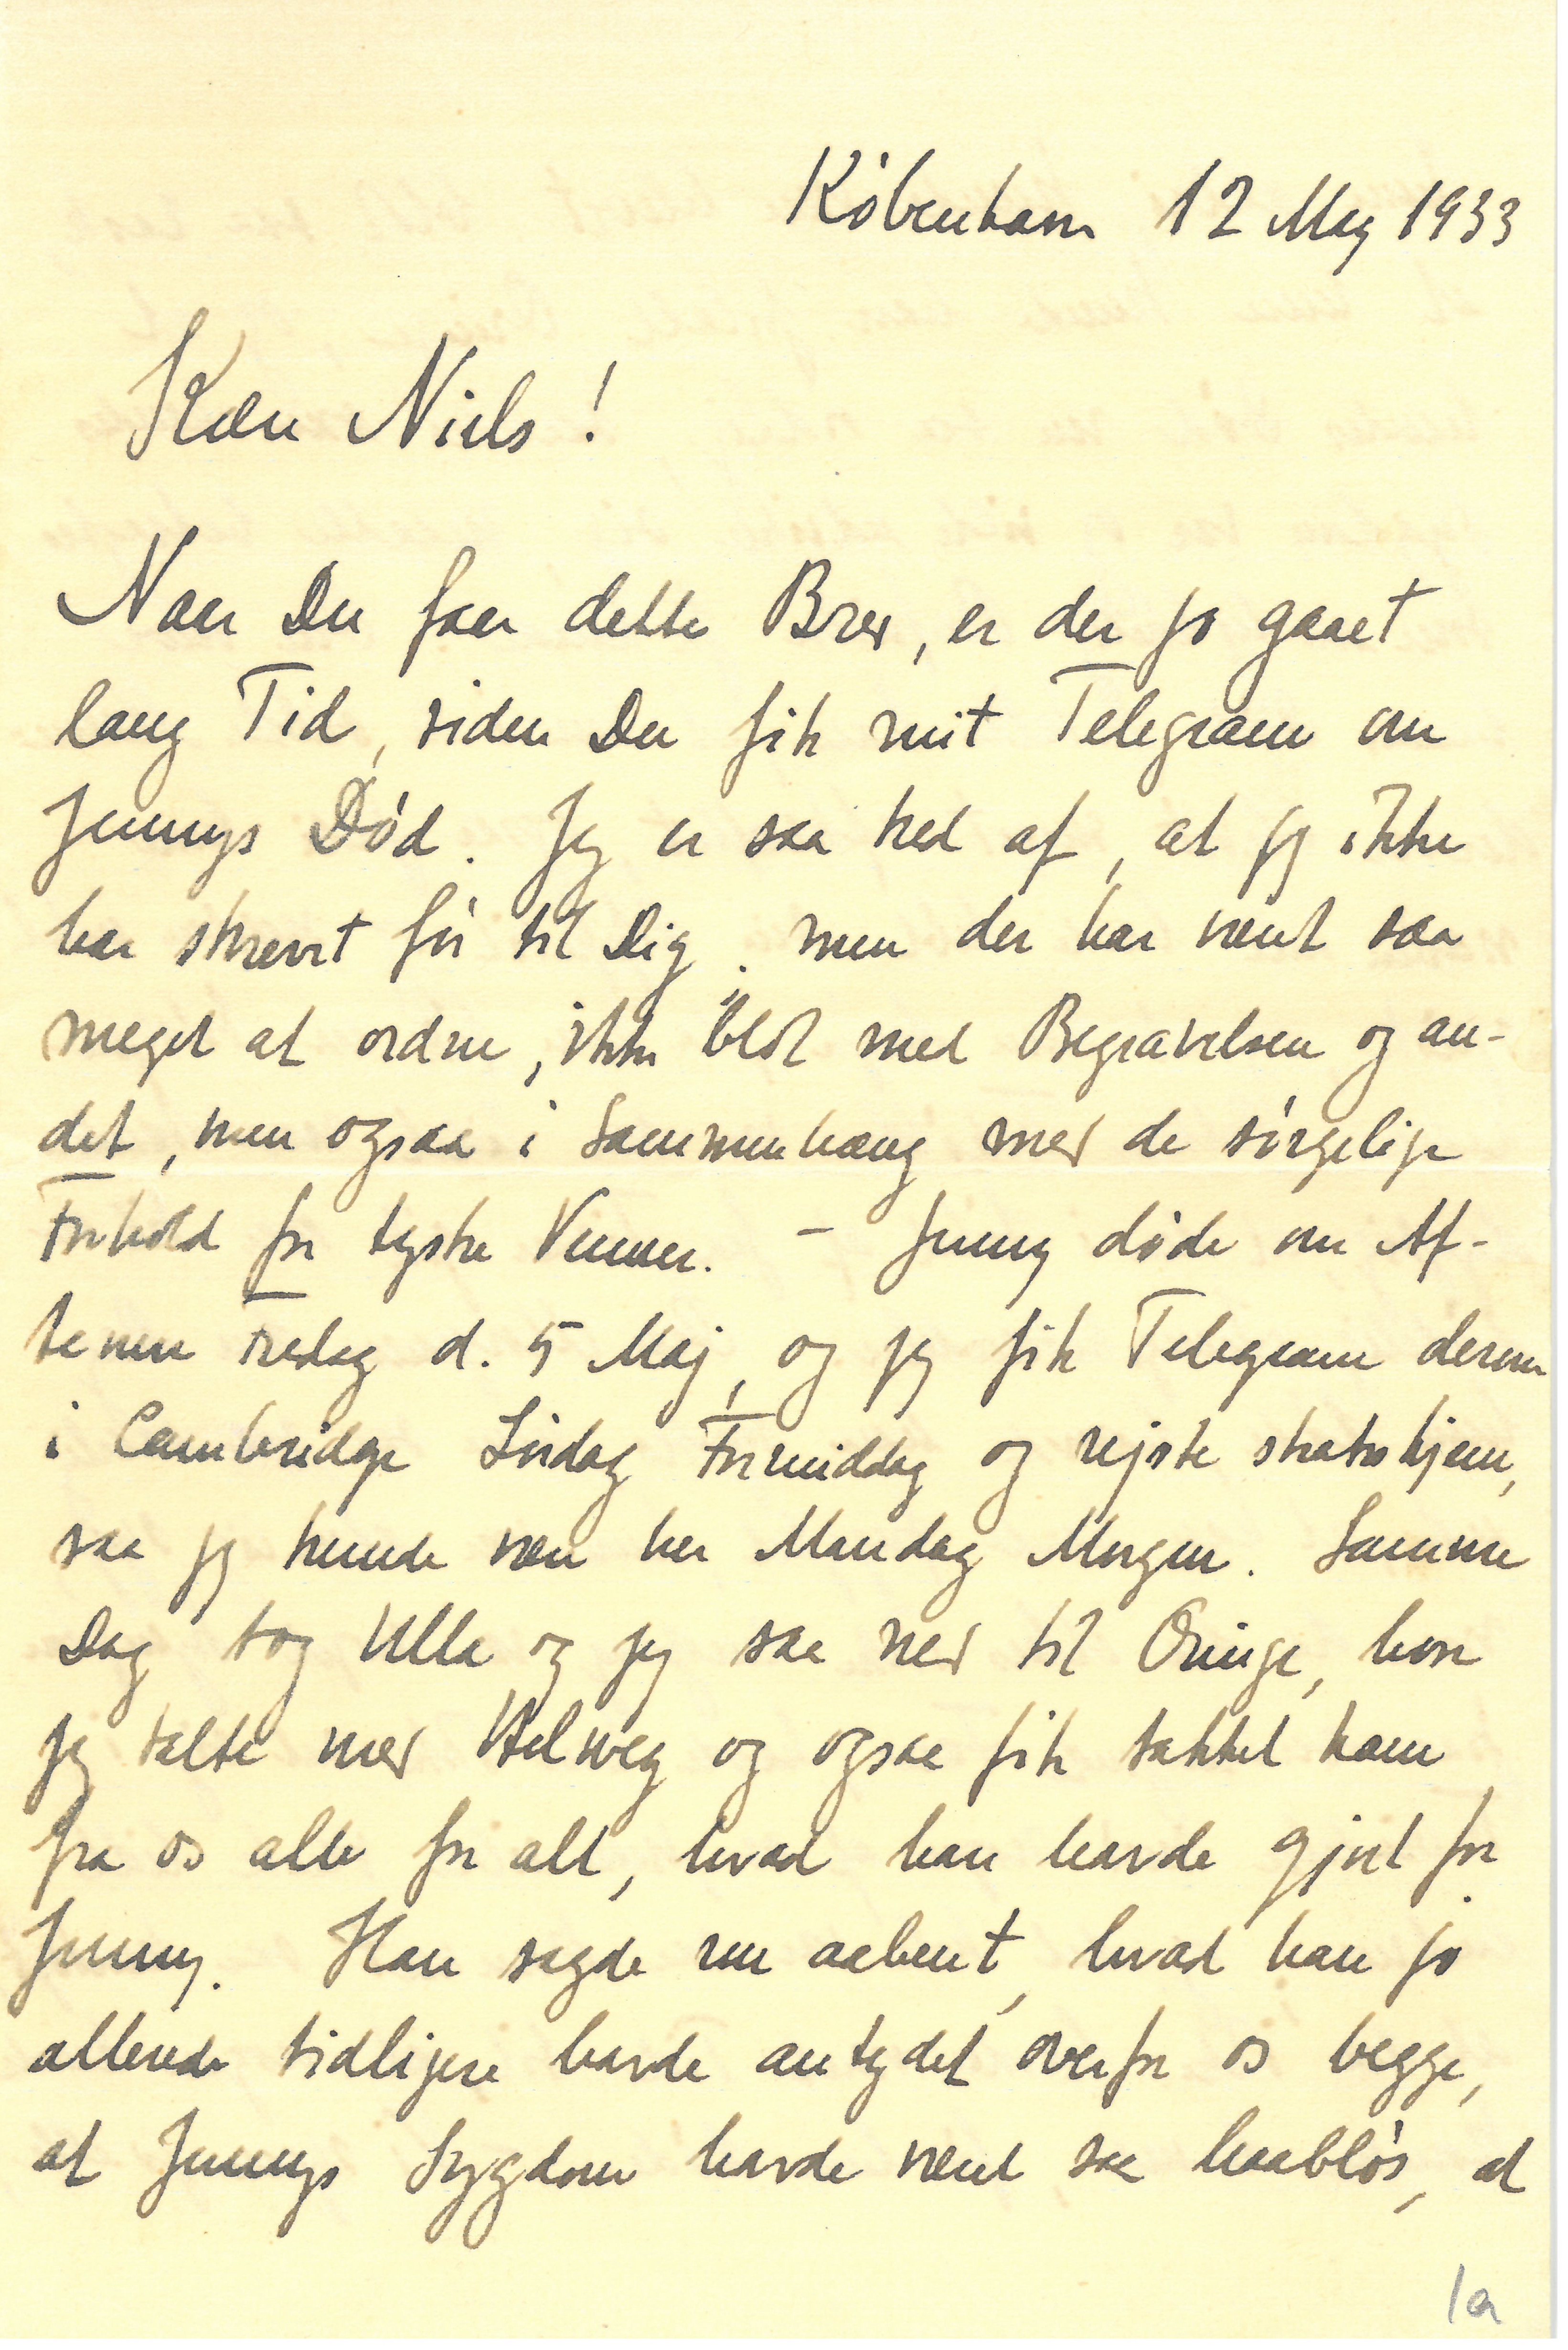 København 12 Maj 1933
Kære Niels!
Naar Du faar dette Brev, er der jo gaaet
lang Tid, siden Du fik mit Telegram om
Jennys Død. Jeg er saa ked af, at jeg ikke
har skrevet før til Dig, men der har været saa
meget at ordne, ikke blot med Begravelsen og an-
det, men ogsaa i Sammenhæng med de sørgelige
Forhold for tyske Venner. – Jenny døde om Af-
tenen Fredag d. 5 Maj, og jeg fik Telegram derom
i Cambridge Lørdag Formiddag og rejste straks hjem,
saa jeg kunde være her Mandag Morgen. Samme
Dag tog Ulla og jeg saa ned til Oringe, hvor
jeg talte med Helweg og ogsaa fik takket ham
fra os alle for alt, hvad han havde gjort for
Jenny. Han sagde nu aabent, hvad han jo
allerede tidligere havde antydet overfor os begge,
at Jennys Sygdom havde været saa haabløs, at
1a